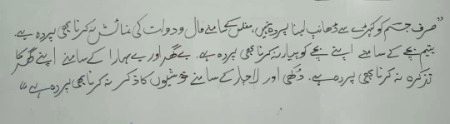 "صرف جسم کو کپڑے سے ڈھانپ لینا پردہ نہیں، مفلس کے سامنے مال و دولت کی نمائش نہ کرنا بھی پردہ ہے۔
یتیم بچے کے سامنے اپنے بچے کو پیار نہ کرنا بھی پردہ ہے۔ بے گھر اور بے سہارا کے سامنے اپنے گھر کا
تذکرہ نہ کرنا بھی پردہ ہے۔ دُکھی اور لاچار کے سامنے خوشیوں کا ذکر نہ کرنا بھی پردہ ہے"